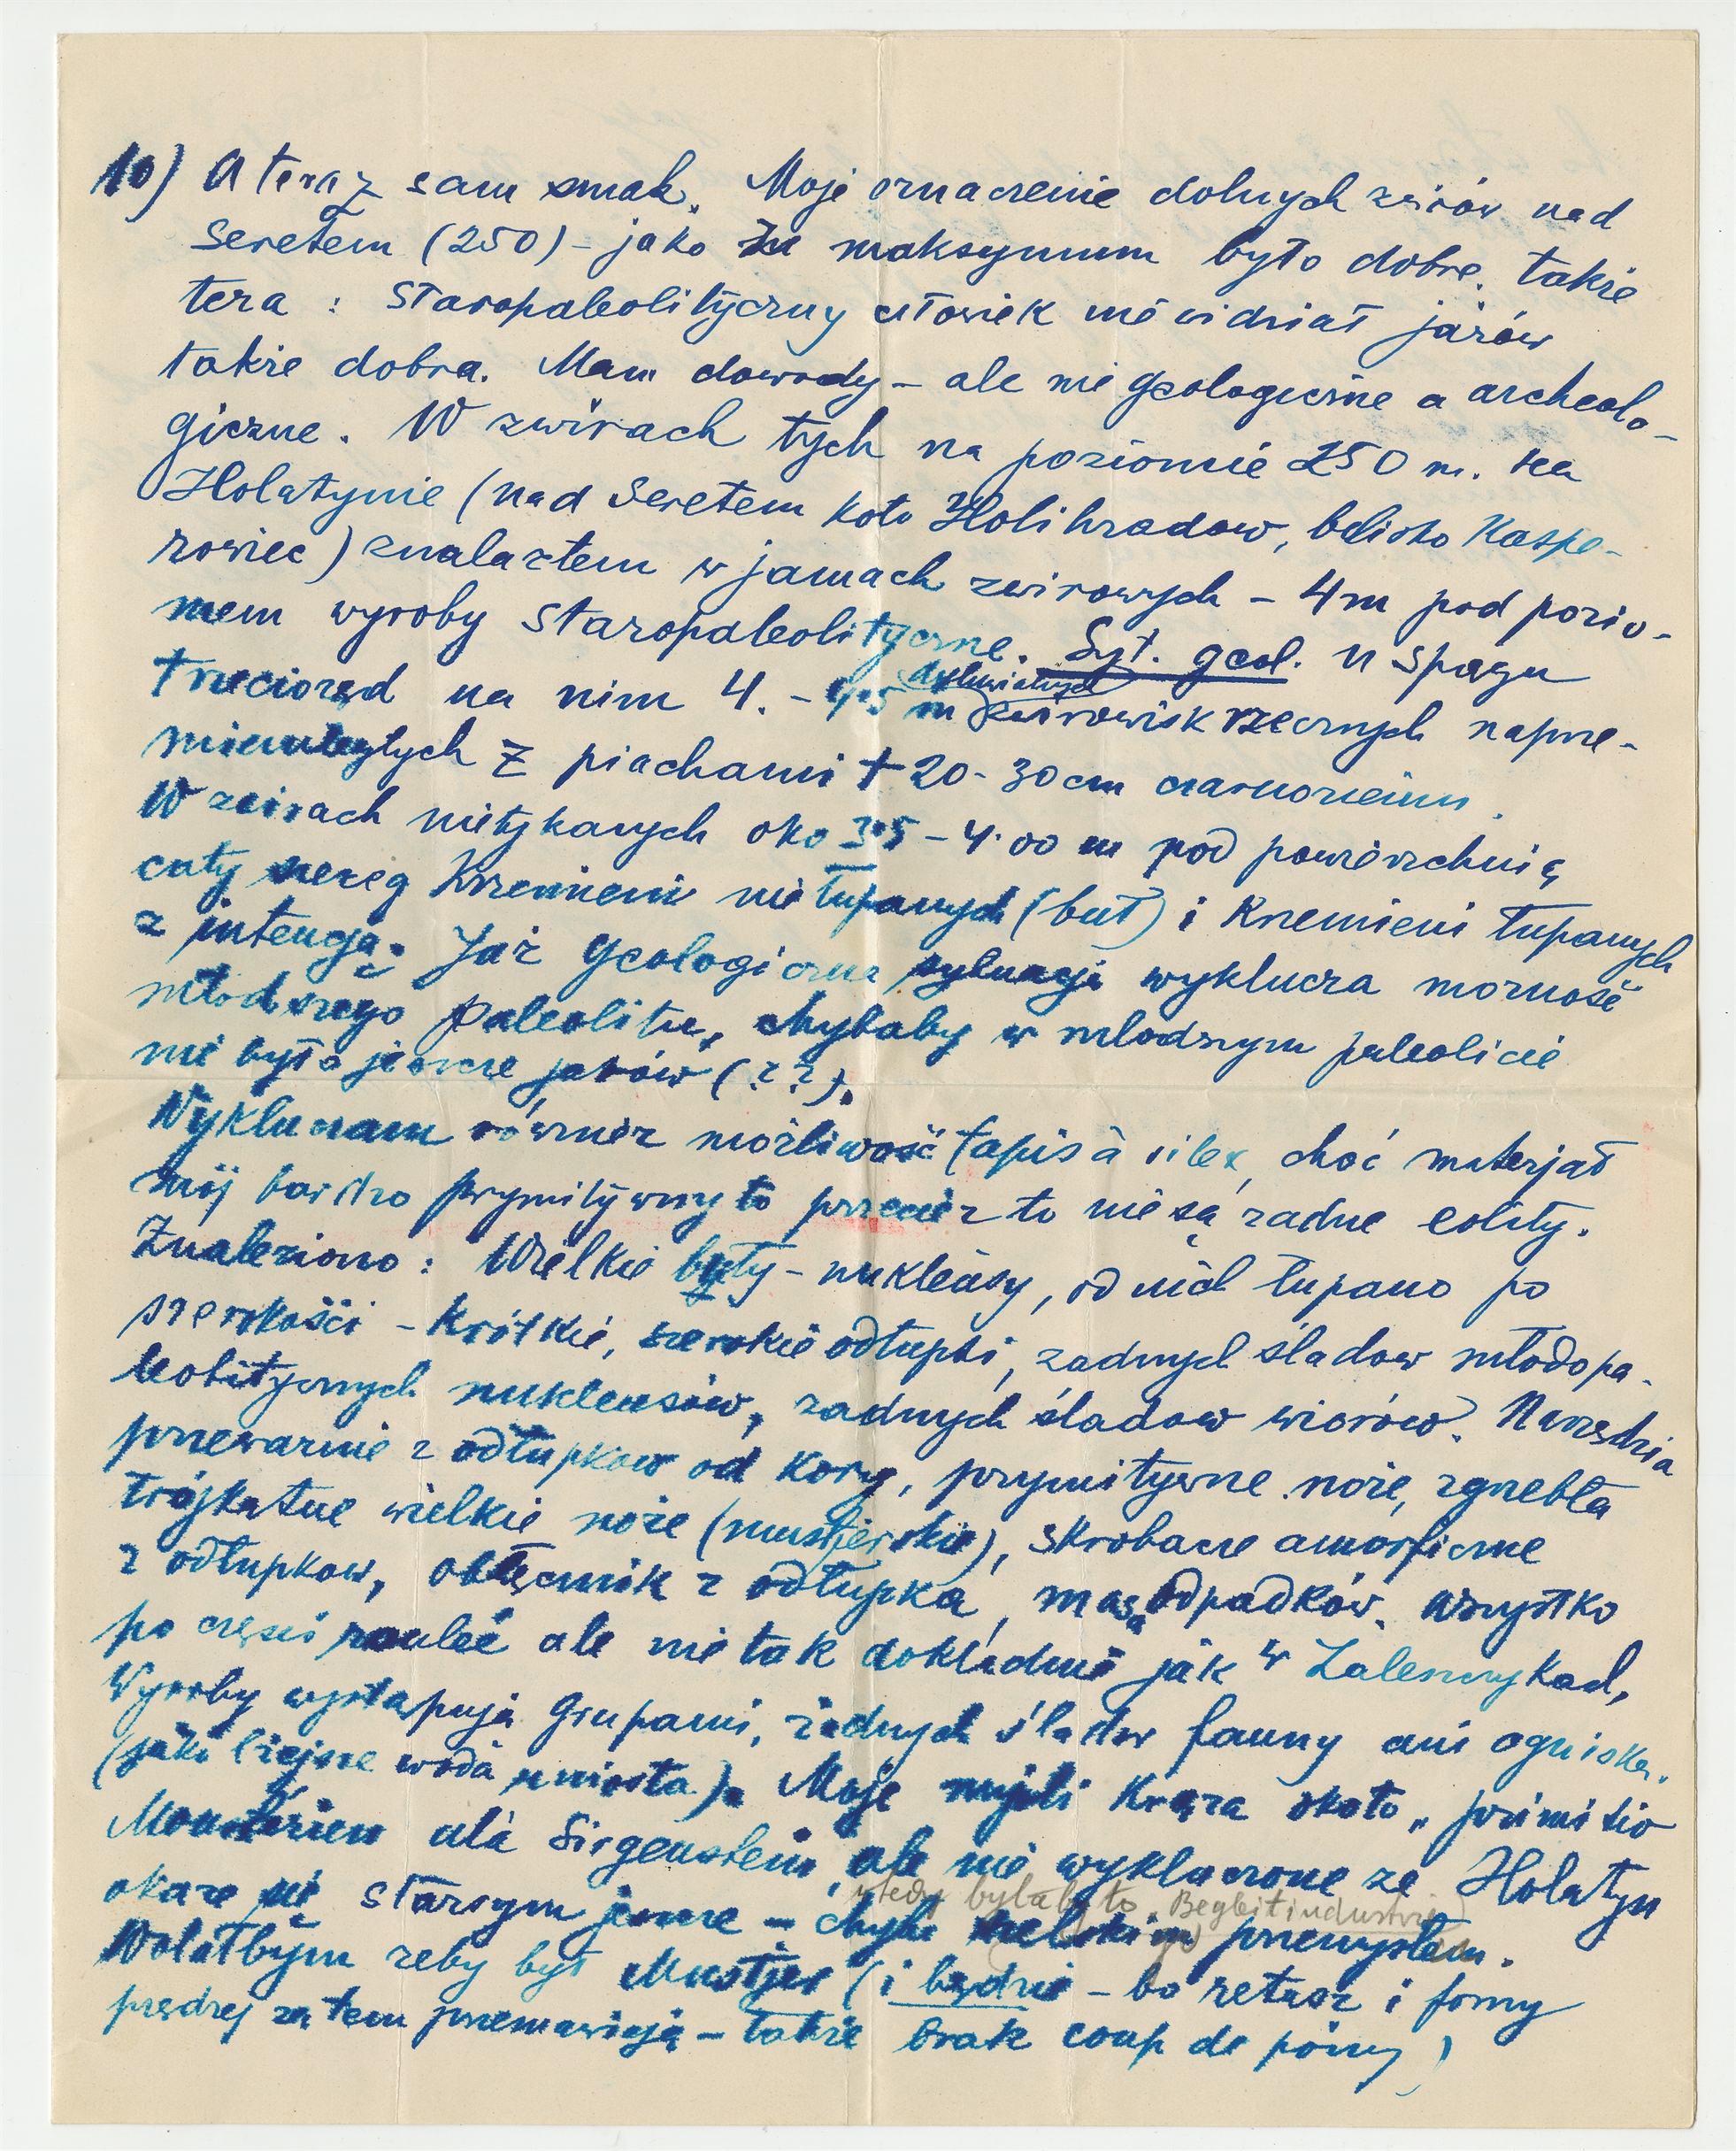 10) A teraz sam smak. Moje oznaczenie dolnych żwirów nad
Seretem (250) – jako że maksymum było dobre. także
teza : staropaleolityczny człowiek nie widział jarów
także dobra. Mam dowody – ale nie geologiczne a archeolo-
giczne. W żwirach tych na poziomie 250 m. na
Holatynie (nad Seretem koło Holihradów, blisko Kaspe-
rowiec) znalazłem w jamach żwirowych – 4m pod pozio-
mem wyroby staropaleolityczne. Syt. geol. u spągu
trzeciorzęd na nim 4. – 4·5 m dyluwialnych żwirowisk rzecznych naprze-
mienległych z piachami + 20–30 cm czarnoziemu.
W żwirach nietykanych oko 3·5 – 4·00 m pod powierzchnią
cały szereg krzemieni nie łupanych (buł) i krzemieni łupanych
z intencją. Już geologiczna sytuacja wyklucza możność
młodszego paleolitu, chybaby w młodszym paleolicie
nie było jeszcze jarów (??).
Wykluczam również możliwość tapis à silex, choć materjał
mój bardzo prymitywny to przecież to nie są żadne eolity.
Znaleziono : Wielkie buły – nukleusy, od nich łupano po
szerokości – krótkie, szerokie odłupki, żadnych śladów młodopa-
leolitycznych nukleusów, żadnych śladow wiorów. Narzędzia
przeważnie z odłupkow od kory, prymitywne noże, zgrzebła
trójkątne wielkie noże (mustjerskie), skrobacze amorficzne
z odłupkow, obłęcznik z odłupka, masa odpadków. Wszystko
po części ale nie tak dokładnie jak w Zaleszczykach,
Wyroby występują grupami, żadnych śladów fauny ani ogniska.
(jako lżejsze woda uniosła). Moje myśli krążą około „primitiv
Moustérien" à la Sirgenstein, ale nie wykluczone że Holatyn
okaże się starszym jeszcze – chyba szelskim przemysłem.
wtedy byłaby to „Begleitindustrie"
Wolałbym żeby był Mustjer (i będzie – bo retusz i formy
prędzej za tem przemawiają – także brak coup de poing)